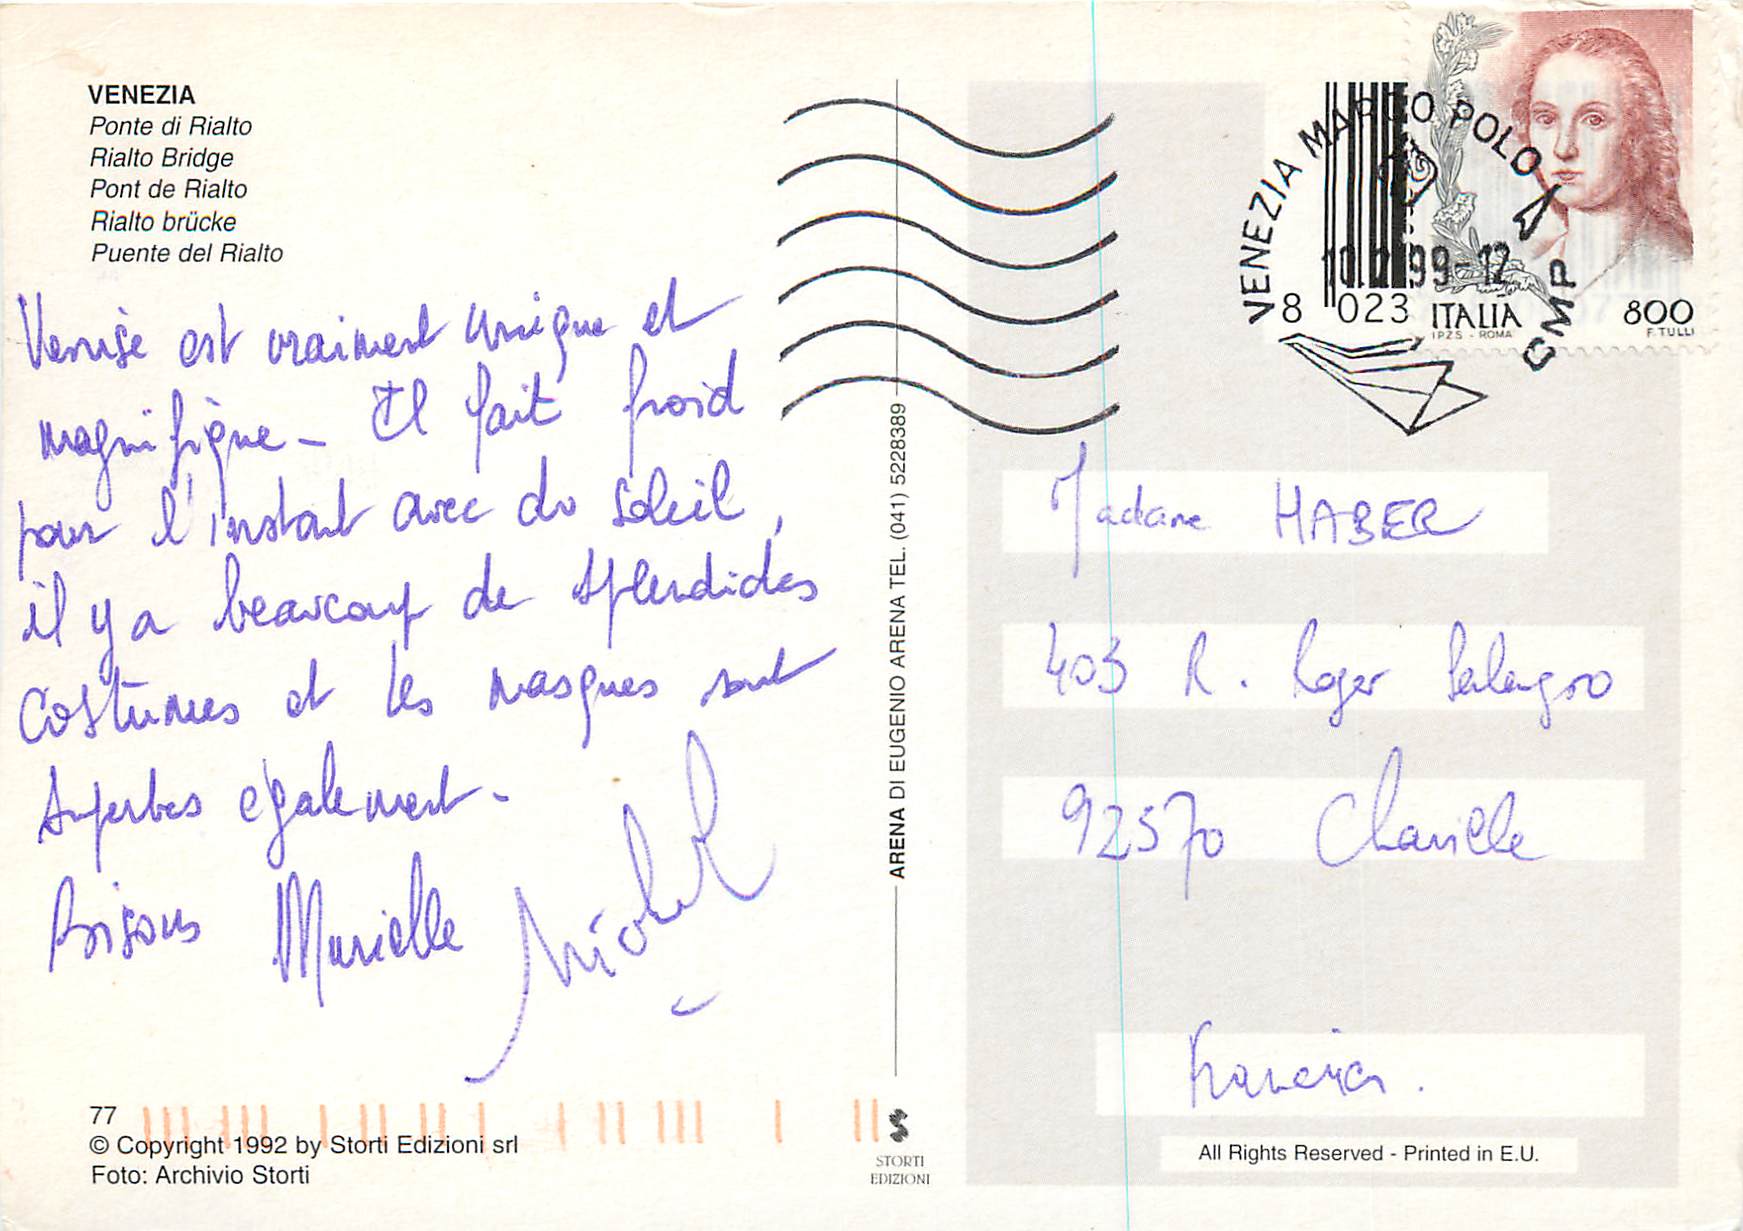 VENEZIA
Ponte di Rialto
Rialto Bridge
Pont de Rialto
Rialto brücke
Puente del Rialto
Venise est vraiment unique et
magnifique - Il fait froid
pour l'instant avec du soleil,
il y a beaucoup de splendides
costumes et les masques sont
superbes également -
Bisous Murielle
77
© Copyright 1992 by Storti Edizioni srl
Foto: Archivio Storti
ARENA DI EUGENIO ARENA TEL. (041) 5228389
STORTI
EDIZIONI
VENEZIA MARCO POLO CMP
99-12
8 023
ITALIA
800
IPZS - ROMA
F. TULLI
Madame HABER
403 R. Roger Salengro
92570 Chaville
All Rights Reserved - Printed in E.U.